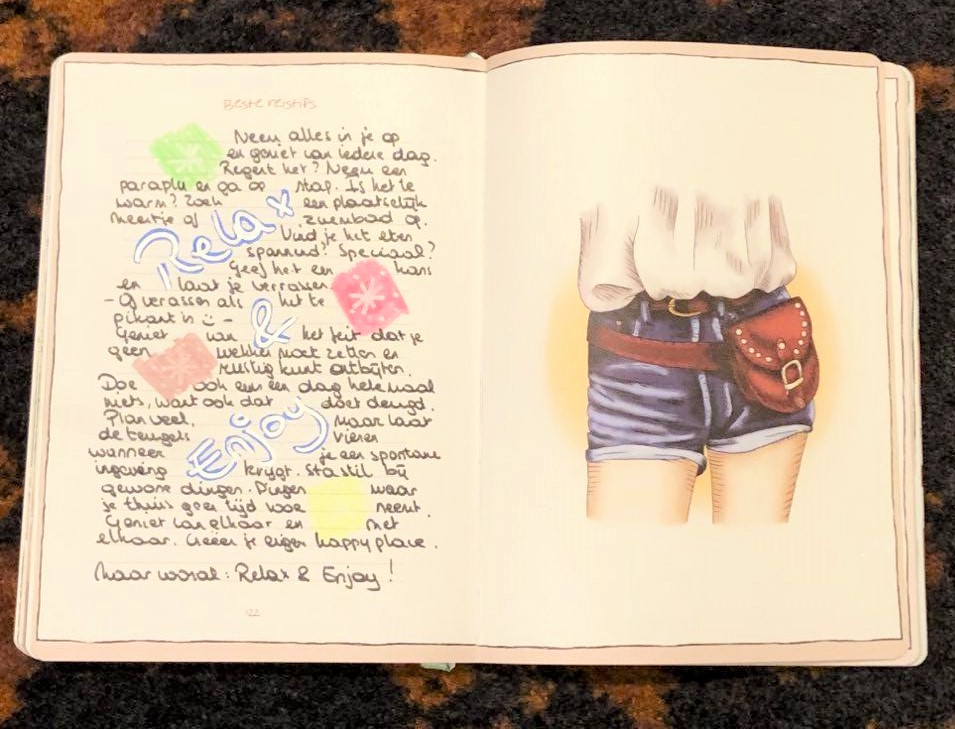 Beste reistips
Neem alles in je op
en geniet van iedere dag.
Regent het? Neem een
paraplu en ga op stap. Is het te
warm? Zoek een plaatselijk
meertje of zwembad op.
Relax
Vind je het eten
spannend? Speciaal?
Geef het een kans
en laat je verrassen
- Of verassen als het te
pikant is :) -
&
Geniet van het feit dat je
geen wekker moet zetten en
rustig kunt ontbijten.
Doe ook eens een dag helemaal
niets, want ook dat doet deugd.
Plan veel. Maar laat
de teugels vieren
Enjoy
wanneer je een spontane
ingeving krijgt. Sta stil bij
gewone dingen. Dingen waar
je thuis geen tijd voor neemt.
Geniet van elkaar en met
elkaar. Creëer je eigen happy place.
Maar vooral: Relax & Enjoy!
122